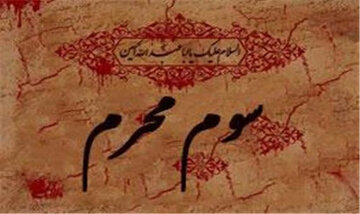 السلام علیک یا ابا عبد الله الحسین
سوم محرم